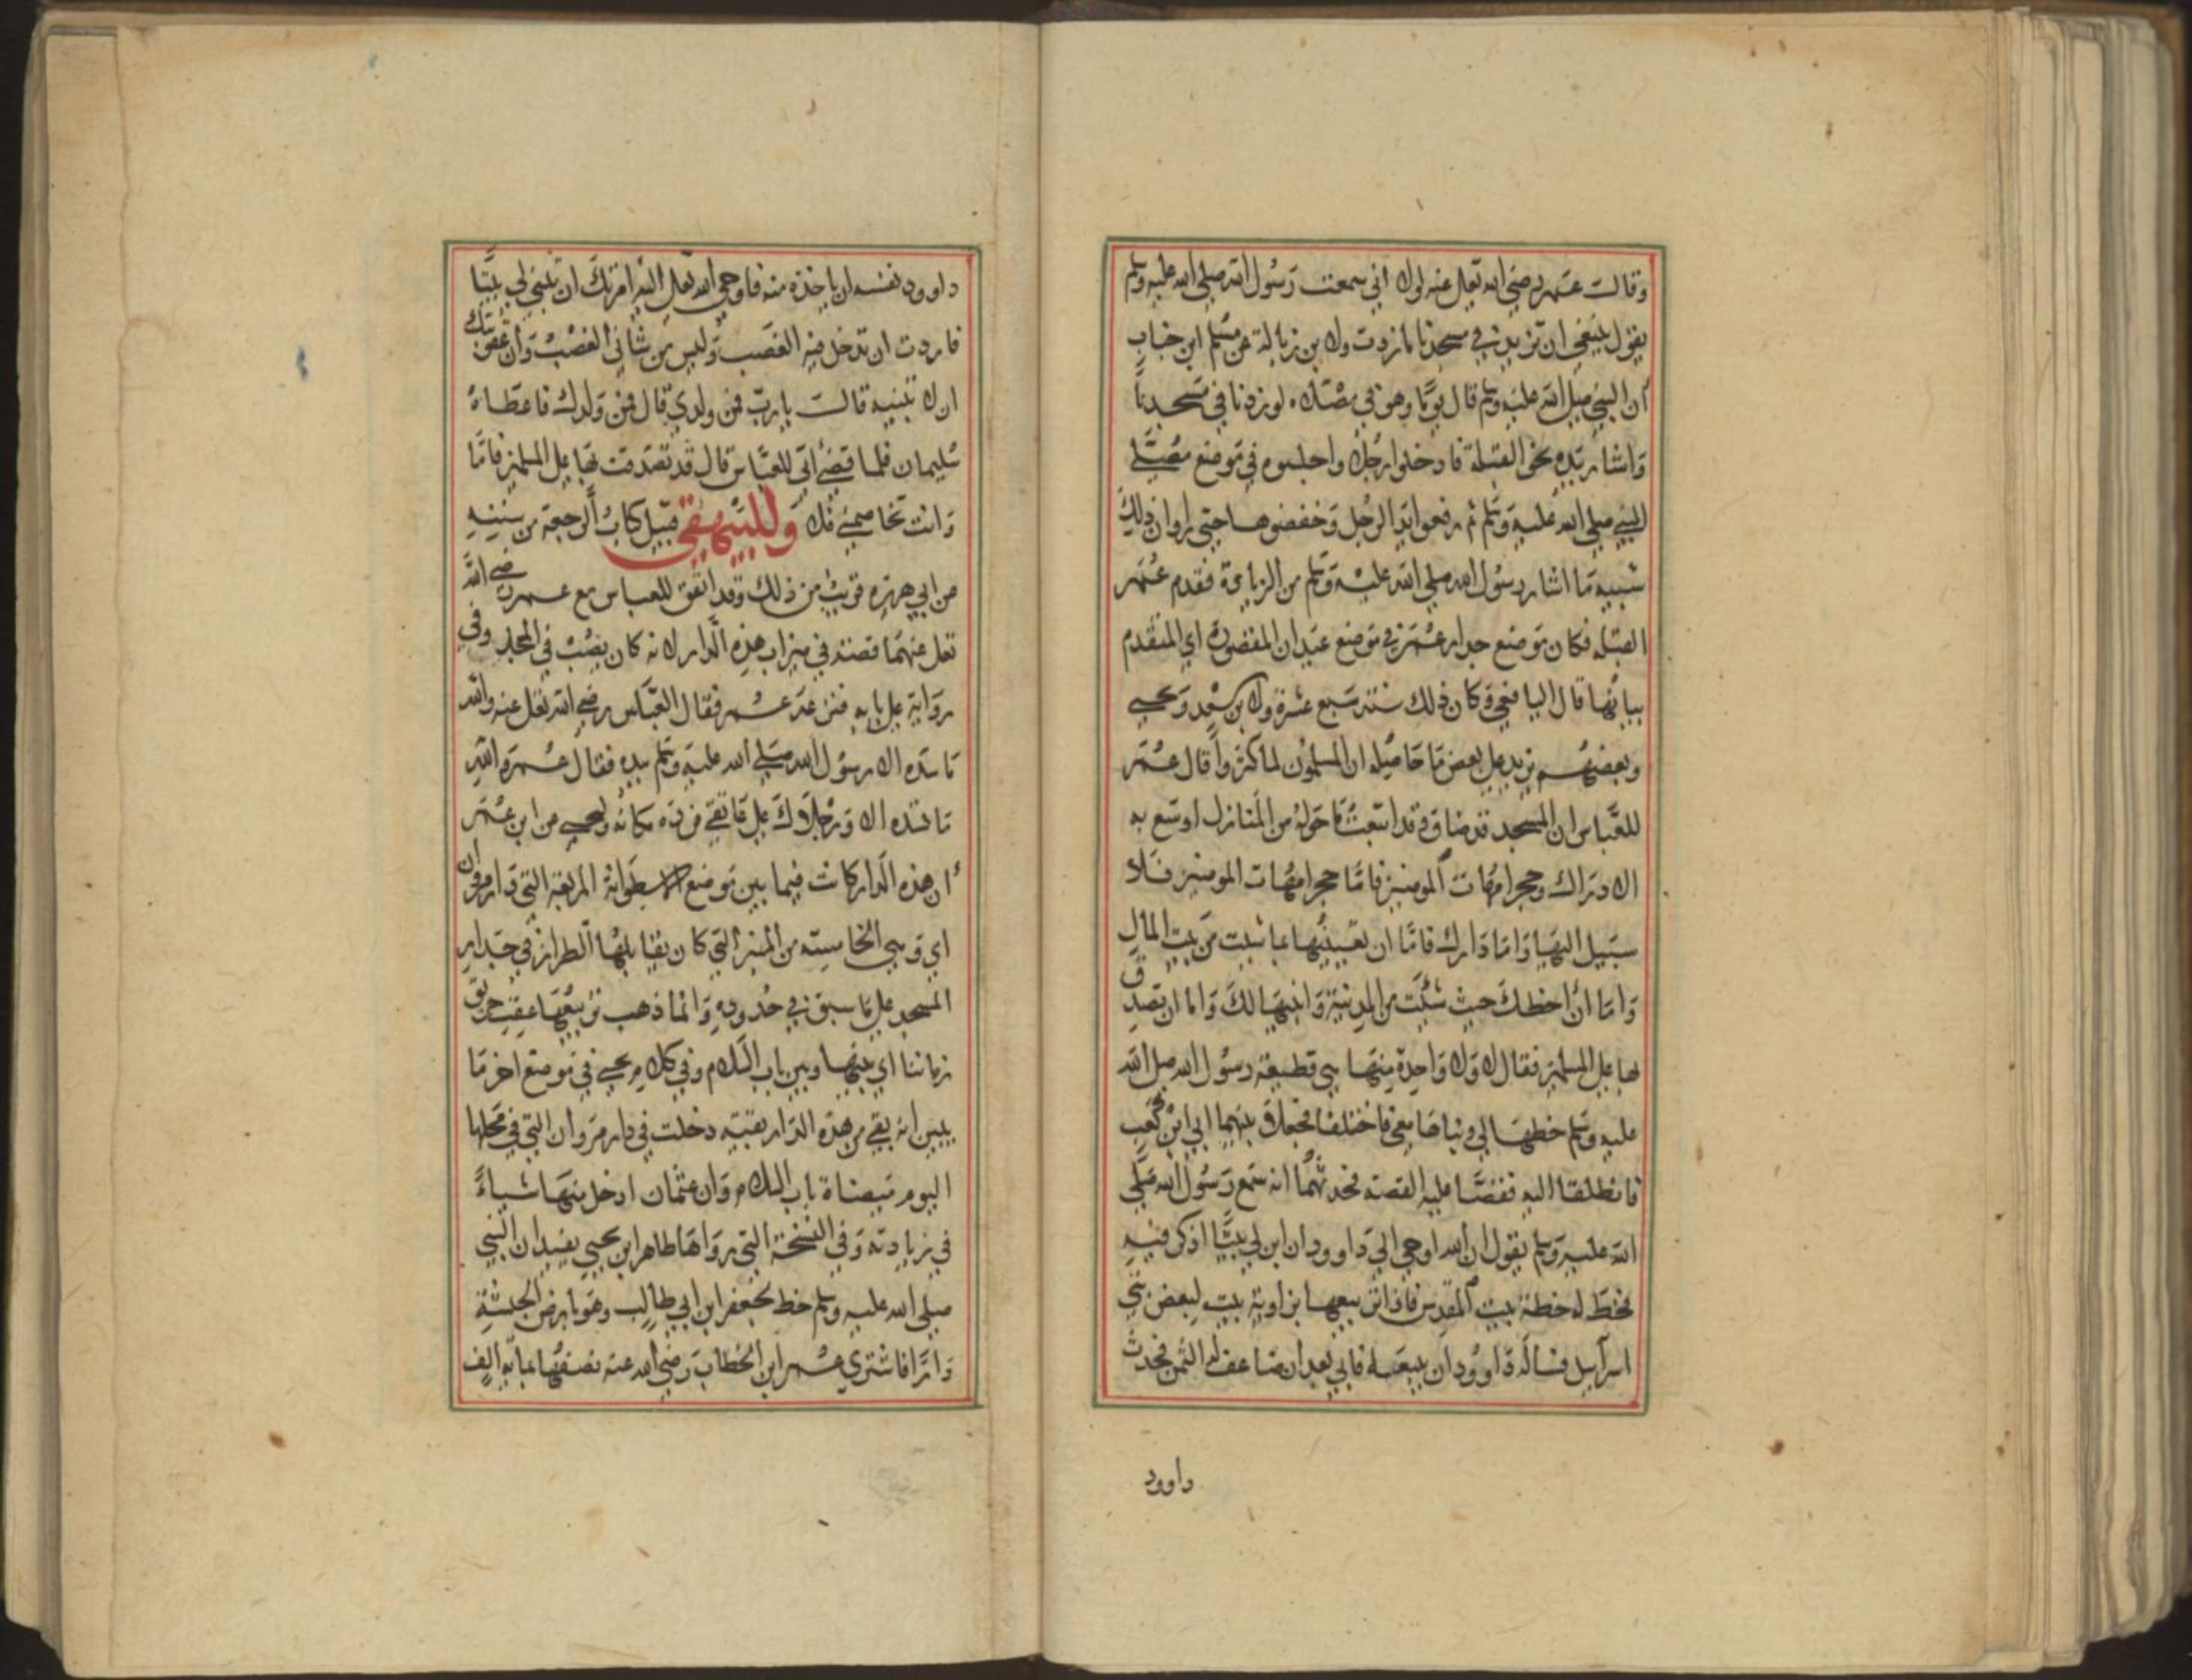 وقالت عمر رضي الله تعالى عنه لولا اني سمعت رسول الله صلى الله عليه وسلم
يقول ينبغي ان نزيد في مسجدنا ما زدت ولابن زبالة عن مسلم ابن خباب
ان النبي صلى الله عليه وسلم قال يوما وهو في مصلاه لو زدنا في مسجدنا
واشار بيده نحو القبلة فادخلوا رجلا واجلسوه في موضع مصلى
النبي صلى الله عليه وسلم ثم رفعوا يد الرجل وخفضوها حتى راوا ان ذلك
شبيه ما اشار رسول الله صلى الله عليه وسلم من الزيادة فقدم عمر
القبلة فكان موضع جدار عمر في موضع عيدان المقصورة اي المتقدم
بيانها قال اليافعي وكان ذلك سنة سبع عشرة ولابن سعد ويحيى
وبعضهم يزيد على بعض ما حاصله ان المسلمون لما كثروا قال عمر
للعباس ان المسجد قد ضاق وقد ابتعت ما حوله من المنازل اوسع به
الا دراك وحجر امهات المومنين فاما حجر امهات المومنين فلا
سبيل اليها واما دارك فاما ان تعيينيها بما شيت من بيت المال
واما ان اخطك حيث شئت من المدينة وابنيها لك واما ان تصدق
بها على المسلمين فقال لا ولا واحدة منها هي قطيعة رسول الله صلى الله
عليه وسلم خطها لي وبناها معي فاختلفا فجعلا بينهما ابي ابن كعب
فانطلقا اليه فقصا عليه القصة فحدثهما انه سمع رسول الله صلى
الله عليه وسلم يقول ان الله اوحى الى داوود ان ابن لي بيتا اذكر فيه
فخط له خطة بيت المقدس فاذا تربيعها بزاوية بيت لبعض بني
اسرآييل فساله داوود ان يبيعه له فابى بعد ان ضاعف له الثمن فحدث
داوود
داوود نفسه ان ياخذه منه فاوحى الله تعالى اليه امرتك ان تبني لي بيتا
فاردت ان تدخل فيه الغصب وليس من شاني الغصب وان عقوبتك
ان لا تبنيه قالت يا رب فمن ولدي قال فمن ولدك فاعطاه
سليمان فلما قضى ابي للعباس قال قد تصدقت بها على المسلمين فاما
وانت تخاصمني فلا وللبيهقي قبيل كتاب الرجعة من سننه
عن ابي هريرة قريب من ذلك وقد اتفق للعباس مع عمر رضي الله
تعلى عنهما قصته في ميزاب هذه الدار لانه كان يصب في المسجد وفي
رواية على بابه فنزعه عمر فقال العباس رضي الله تعلى عنه والله
ما شده الا رسول الله صلى الله عليه وسلم بيده فقال عمر والله
ما تشده الا ورجلاك على عاتقي فرده مكانه وليحيى عن ابن عمر
ان هذه الدار كانت فيما بين موضع الاسطوانة المربعة التي دار مروان
اي وهي الخامسة من المنبر التي كان يقابلها الطراز في جدار
المسجد على ما سبق في حدوده وانما ذهب تربيعها عقب حريق
زماننا اي بينها وبين باب السلام وفي كلام يحيى في موضع اخر ما
يبين انه بقي من هذه الدار بقية دخلت في دار مروان التي في محلها
اليوم ميضاة باب السلام وان عثمان ادخل منها شياء
في زيادته وفي النسخة التي رواها طاهر ابن يحيى يفيد ان النبي
صلى الله عليه وسلم خط لجعفر ابن ابي طالب وهو بارض الحبشة
دارا فاشترى عمر ابن الخطاب رضي الله عنه نصفها بماية الف